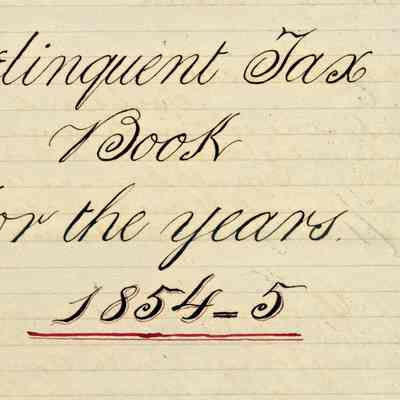 elinquent Tax
Book
or the years.
1854-5